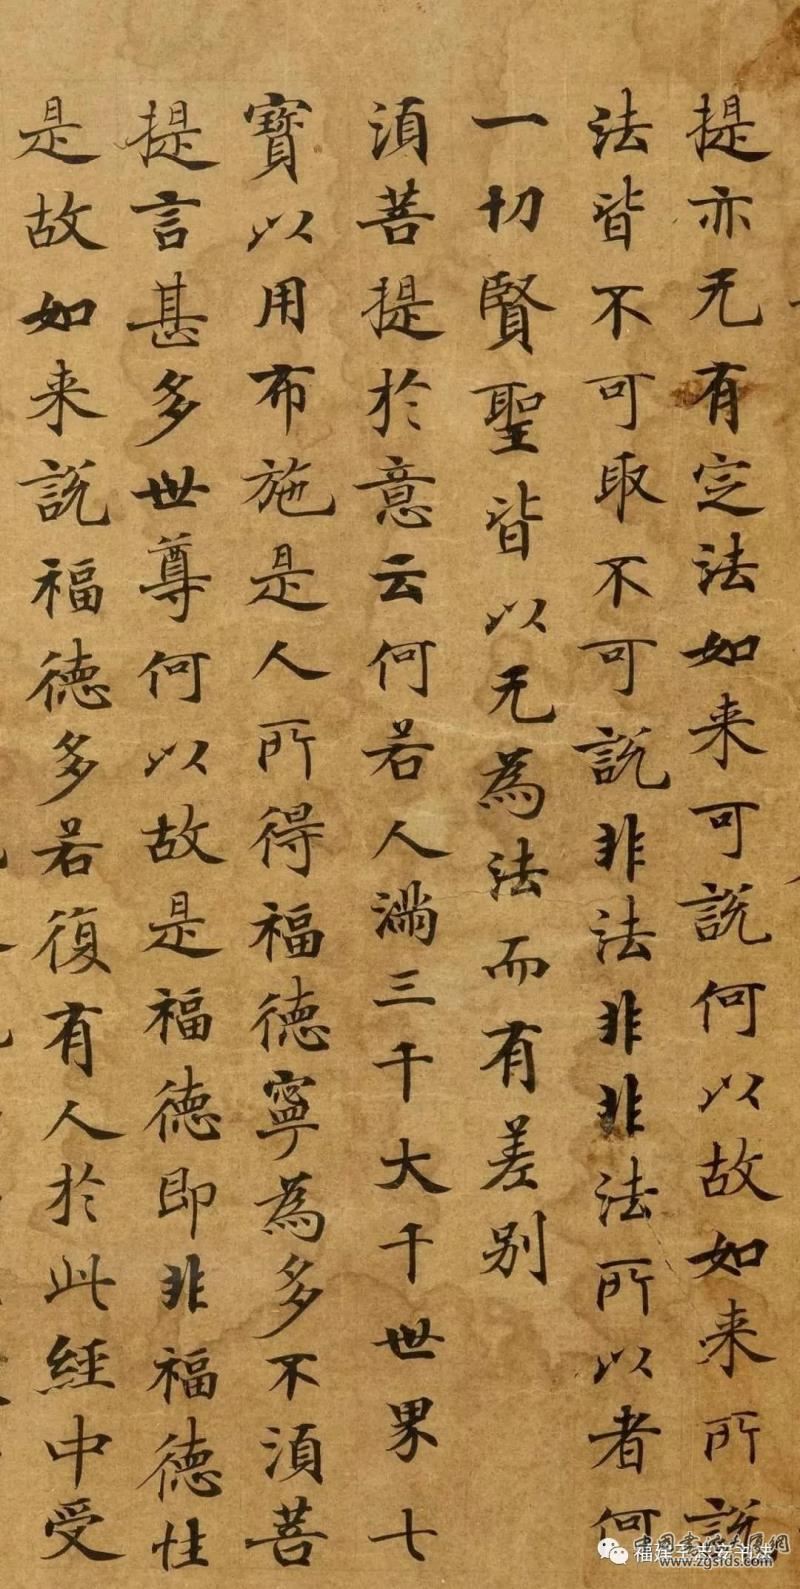 提亦无有定法如来可説何以故如来所説
法皆不可取不可説非法非非法所以者何
一切賢聖皆以无為法而有差别
須菩提於意云何若人滿三千大千世界七
寶以用布施是人所得福德寧為多不須菩
提言甚多世尊何以故是福德即非福德性
是故如来説福德多若復有人於此經中受
www.zgsfds.com